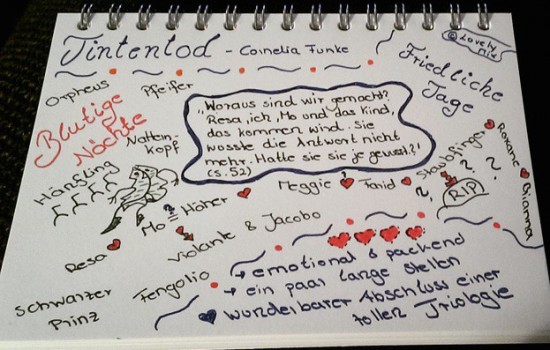 Tintentod - Cornelia Funke
@Lovely
mix
Friedliche
Tage
Orpheus
Pfeifer
Blutige
Nächte
Nattern-
kopf
„Woraus sind wir gemacht?
Resa, ich, Mo und das Kind,
das kommen wird. Sie
wusste die Antwort nicht
mehr. Hatte sie sie je gewusst?"
(S. 52)
Hänfling
Mo = Häher
Meggie
Farid
Staubfinger
Roxane
Brianna
? ? ?
RIP
Resa
Violante & Jacobo
Schwarzer
Prinz
Fenoglio
→ emotional & packend
→ ein paar lange Stellen
wunderbarer Abschluss einer
tollen Triologie